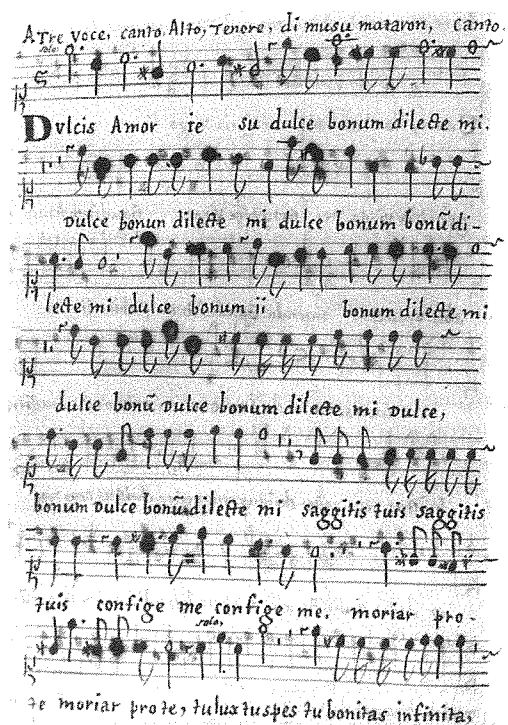 A Tre voce, canto Alto, Tenore, di musu mataron, Canto.
solo.
Dulcis Amor ie su dulce bonum dilecte mi.
Dulce bonun dilecte mi dulce bonum bonū di-
lecte mi dulce bonum ii bonum dilecte mi
dulce bonū Dulce bonum dilecte mi Dulce,
bonum Dulce bonū dilecte mi saggitis tuis saggitis
tuis confige me confige me. moriar pro-
solo,
te moriar pro te, tu lux tu spes tu bonitas infinita,